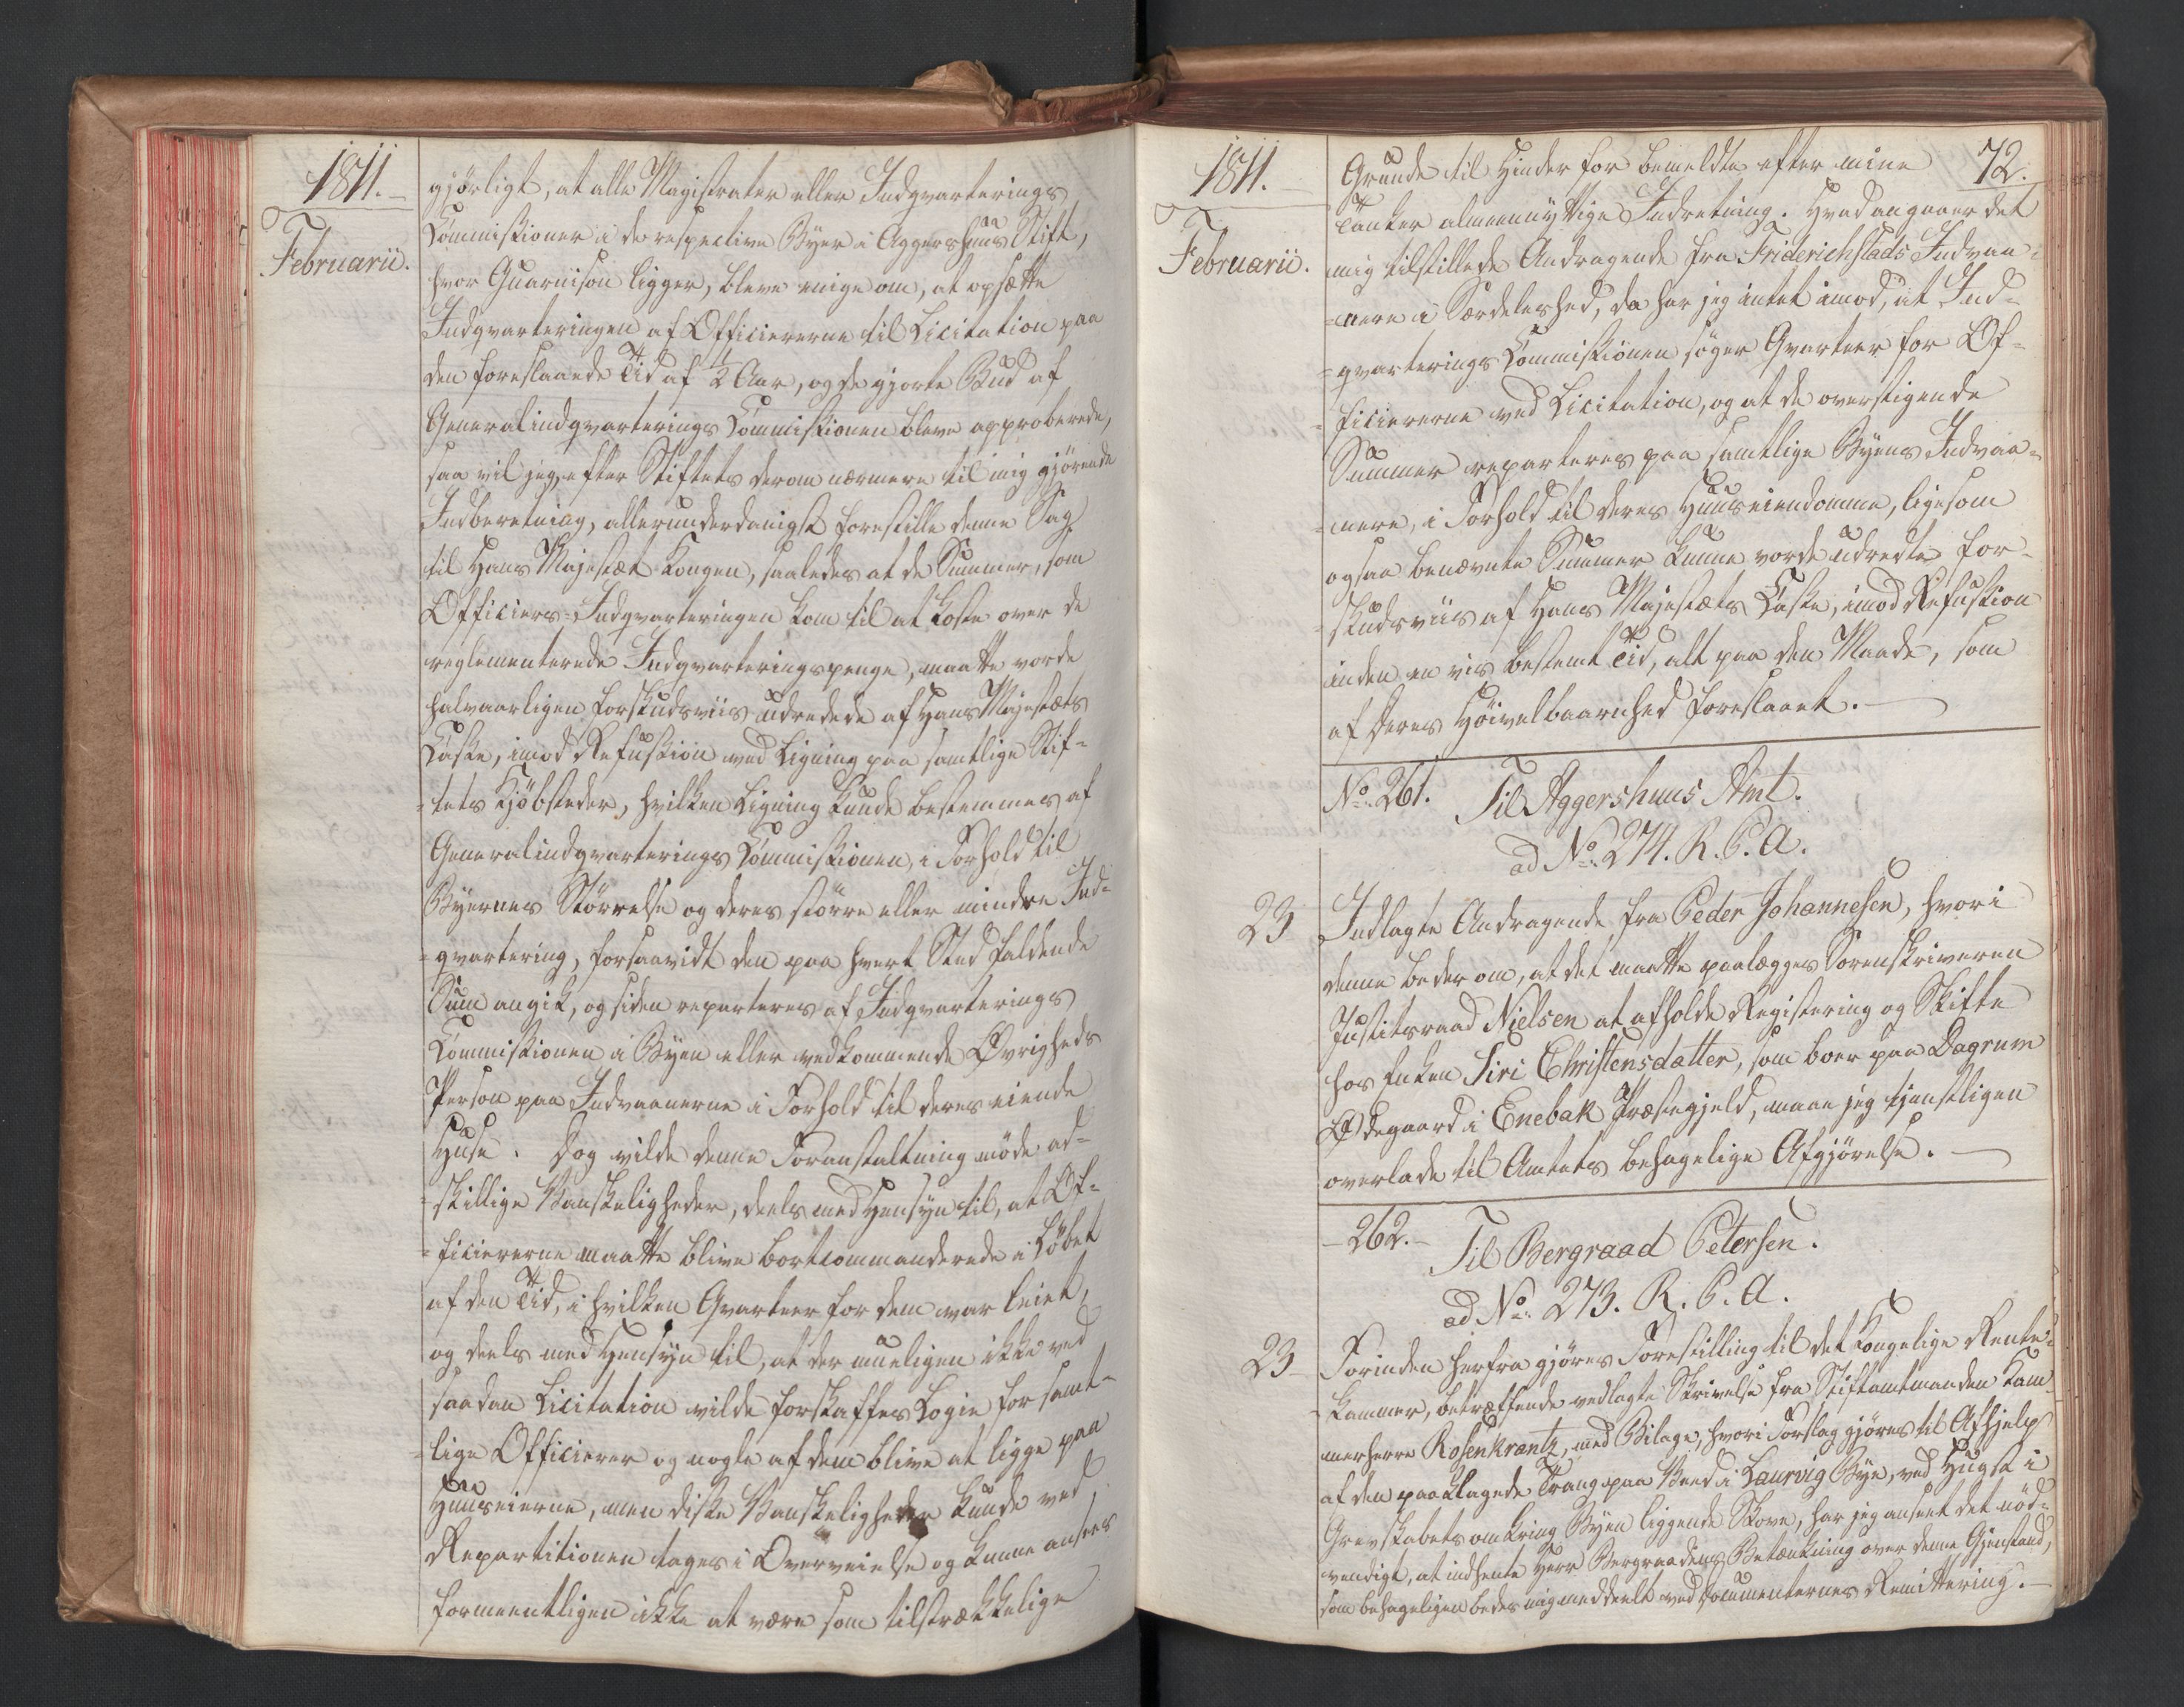 1811.
Februarii.
gjörligt, at alle Magistrater eller Indqvarterings
Commissioner i de respective Byer i Aggershuus Stift,
hvor Guarnison ligger, bleve enige om, at opsætte
Indqvarteringen af Officiererne til Licitation paa
den foreslaaede Tid af 2 Aar, og de gjorte Bud af
Generalindqvarterings Commissionen bleve approberede,
saa vil jeg, efter Stiftets derom nærmere til mig gjörende
Indberetning, allerunderdanigst forestille denne Sag
til Hans Majestæt Kongen, saaledes at de Summer, som
Officiers-Indqvarteringen kom til at koste over de
reglementerede Indqvarteringspenge, maatte vorde
halvaarligen forskudsviis udredede af Hans Majestæts
Casse, imod Refussion ved Ligning paa samtlige Stif-
-tets Kjöbsteder, hvilken Ligning kunde bestemmes af
Generalindqvarterings Commissionen, i Forhold til
Byernes Störrelse og deres större eller mindre Ind-
-qvartering, forsaavidt den paa hvert Sted faldende
Sum angik, og siden reparteres af Indqvarterings
Commissionen i Byen eller vedkommende Øvrigheds
Person paa Indvaanerne i Forhold til deres eiende
Huse. Dog vilde denne Foranstaltning möde ad-
-skillige Vanskeligheder, deels med Hensyn til, at Of-
-ficiererne maatte blive bortcommanderede i Löbet
af den Tid, i hvilken Qvarteer for dem var leiet,
og deels med Hensyn til, at der mueligen ikke ved
saadan Licitation vilde forskaffes Logie for samt-
lige Officierer og nogle af dem blive at ligge paa
Huuseierne, men disse Vanskeligheder kunde ved
Repartitionen tages i Overveielse og kunne ansees
formeentligen ikke at være som tilstrækkelige
1811.
Februarii.
72.
Grunde til Hinder for bemeldte efter mine
Tanker almeennyttige Indretning. Hvad angaaer det
mig tilstillede Andragende fra Friderichstads Indvaa-
-nere i Særdeleshed, da har jeg intet imod, at Ind-
-qvarterings Commissionen söger Qvarteer for Of-
-ficiererne ved Licitation, og at de overstigende
Summer reparteres paa samtlige Byens Indvaa-
-nere, i Forhold til deres Huuseiendomme, ligesom
ogsaa benævnte Summer kunne vorde udredte for-
-skudsviis af Hans Majestæts Casse, imod Refussion
inden en vis bestemt Tid, alt paa den Maade, som
af Deres Höivelbaarnhed foreslaaet.
No. 261. Til Aggershuus Amt.
ad No. 274. R. C. A.
23
Indlagte Andragende fra Peder Johannesen, hvori
denne beder om, at det maatte paalægges Sorenskriveren
Justitsraad Nielsen at afholde Registering og Skifte
hos Enken Siri Christensdatter, som boer paa Dagrum
Ødegaard i Enebak Præstegjeld, maae jeg tjenstligen
overlade til Amtets behagelige Afgjörelse.
-262.- Til Bergraad Petersen.
ad No. 273. R. C. A.
23
Forinden herfra gjöres Forestilling til det Kongelige Rente-
kammer, betræffende vedlagte Skrivelse fra Stiftamtmanden Kam-
merherre Rosenkrantz, med Bilage, hvori Forslag gjöres til Afhjelp
af den paaklagede Trang paa Veed i Laurvig Bye, ved Hugst i
Grevskabets omkring Byen liggende Skove, har jeg anseet det nöd-
vendigt, at indhente Herr Bergraadens Betænkning over denne Gjenstand,
som behageligen bedes mig meddeelt ved Documenternes Remittering.